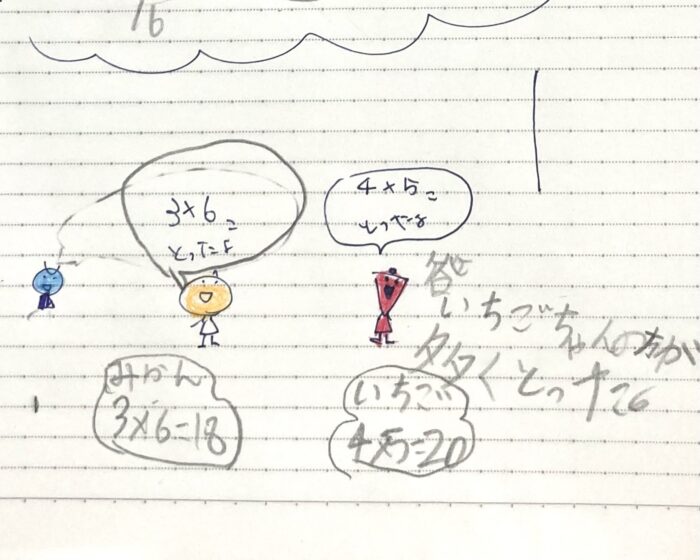 16
3×6=
とったよ
4×5=
とったよ
答え
いちごちゃんの方が
多くとった
みかん
3×6=18
いちご
4×5=20